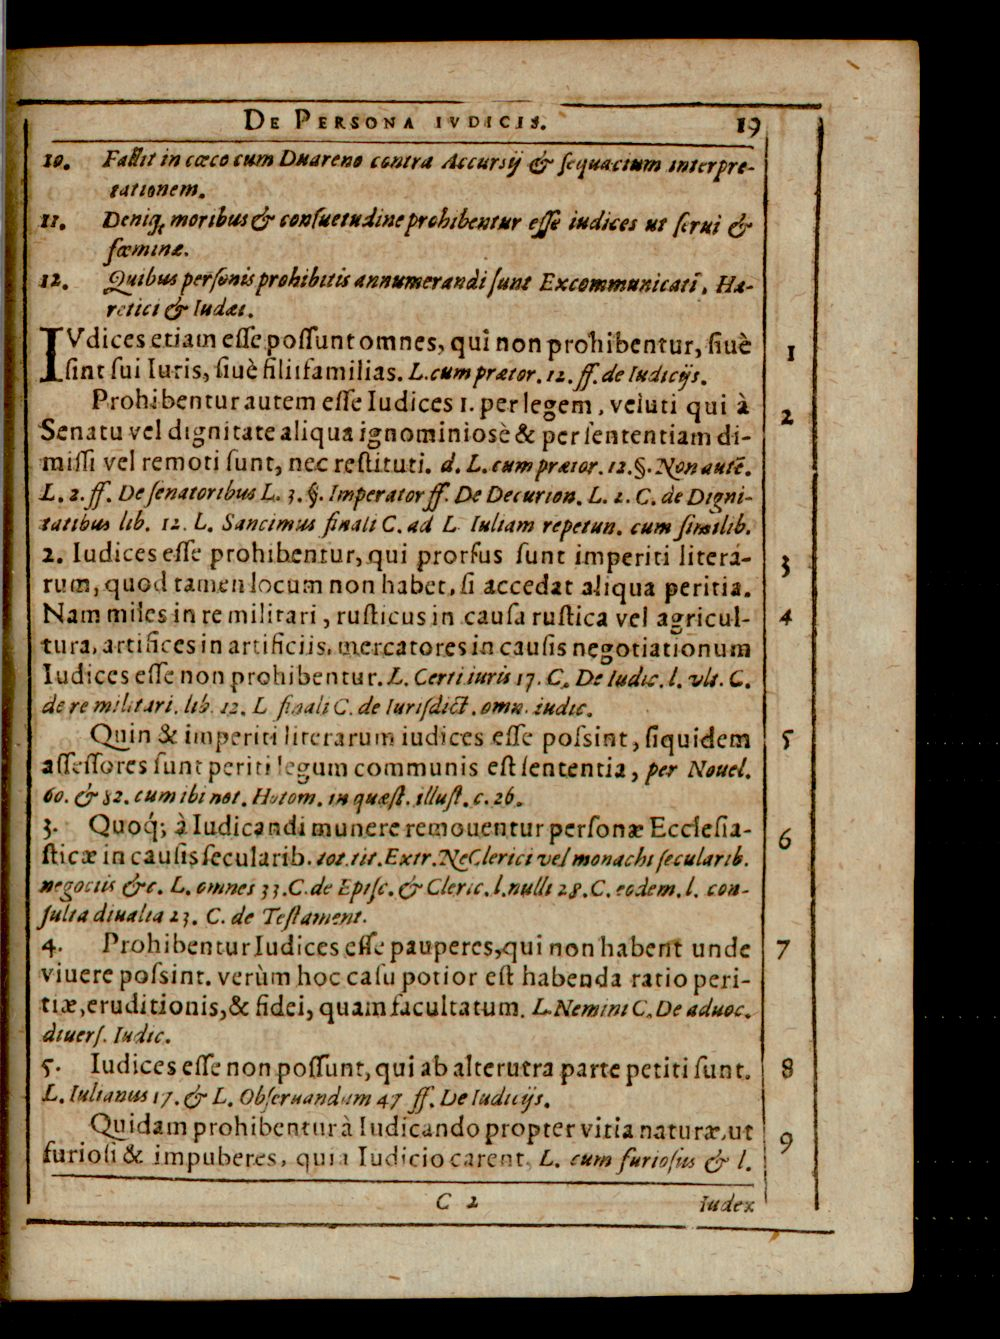 DE PERSONA IVDICIS. 19
10. Fallit in cæco cum Duareno contra Accursij & sequacium interpre-
tationem.
11. Deniq; moribus & consuetudine prohibentur esse iudices ut serui &
fœminæ.
12. Quibus personis prohibitis annumerandi sunt Excommunicati, Hæ-
retici & Iudæi.
IVdices etiam esse possunt omnes, qui non prohibentur, siuè 1
sint sui Iuris, siuè filiifamilias. L. cum prætor. 12. ff. de Iudicijs.
Prohibentur autem esse Iudices 1. per legem, veluti qui à 2
Senatu vel dignitate aliqua ignominiosè & per sententiam di-
missi vel remoti sunt, nec restituti. d. L. cum prætor. 12. §. Non autē.
L. 2. ff. De senatoribus L. 3. §. Imperator ff. De Decurion. L. 2. C. de Digni-
tatibus lib. 12. L. Sancimus finali C. ad L. Iuliam repetun. cum similib.
2. Iudices esse prohibentur, qui prorsus sunt imperiti litera- 3
rum, quod tamen locum non habet, si accedat aliqua peritia.
Nam miles in re militari, rusticus in causa rustica vel agricul- 4
tura, artifices in artificiis, mercatores in causis negotiationum
Iudices esse non prohibentur. L. Certi iuris 17. C. De Iudic. l. vlt. C.
de re militari. lib. 12. L finali C. de Iurisdict. omn. iudic.
Quin & imperiti literarum iudices esse possint, siquidem 5
assessores sunt periti legum communis est sententia, per Nouel.
60. & 82. cum ibi not. Hotom. in quæst. illust. c. 26.
3. Quoq́; à Iudicandi munere remouentur personæ Ecclesia- 6
sticæ in causis secularib. tot. tit. Extr. Ne Clerici vel monachi secularib.
negociis &c. L. omnes 33. C. de Episc. & Cleric. l. nulli 28. C. eodem. l. con-
sulta diualia 23. C. de Testament.
4. Prohibentur Iudices esse pauperes, qui non habent unde 7
viuere possint. verùm hoc casu potior est habenda ratio peri-
tiæ, eruditionis, & fidei, quam facultatum. L. Nemini C. De aduoc.
diuers. Iudic.
5. Iudices esse non possunt, qui ab alterutra parte petiti sunt. 8
L. Iulianus 17. & L. Obseruandum 47 ff. De Iudicijs.
Quidam prohibentur à Iudicando propter vitia naturæ, ut 9
furiosi & impuberes, quia Iudicio carent. L. cum furiosus & l.
C 2 Iudex